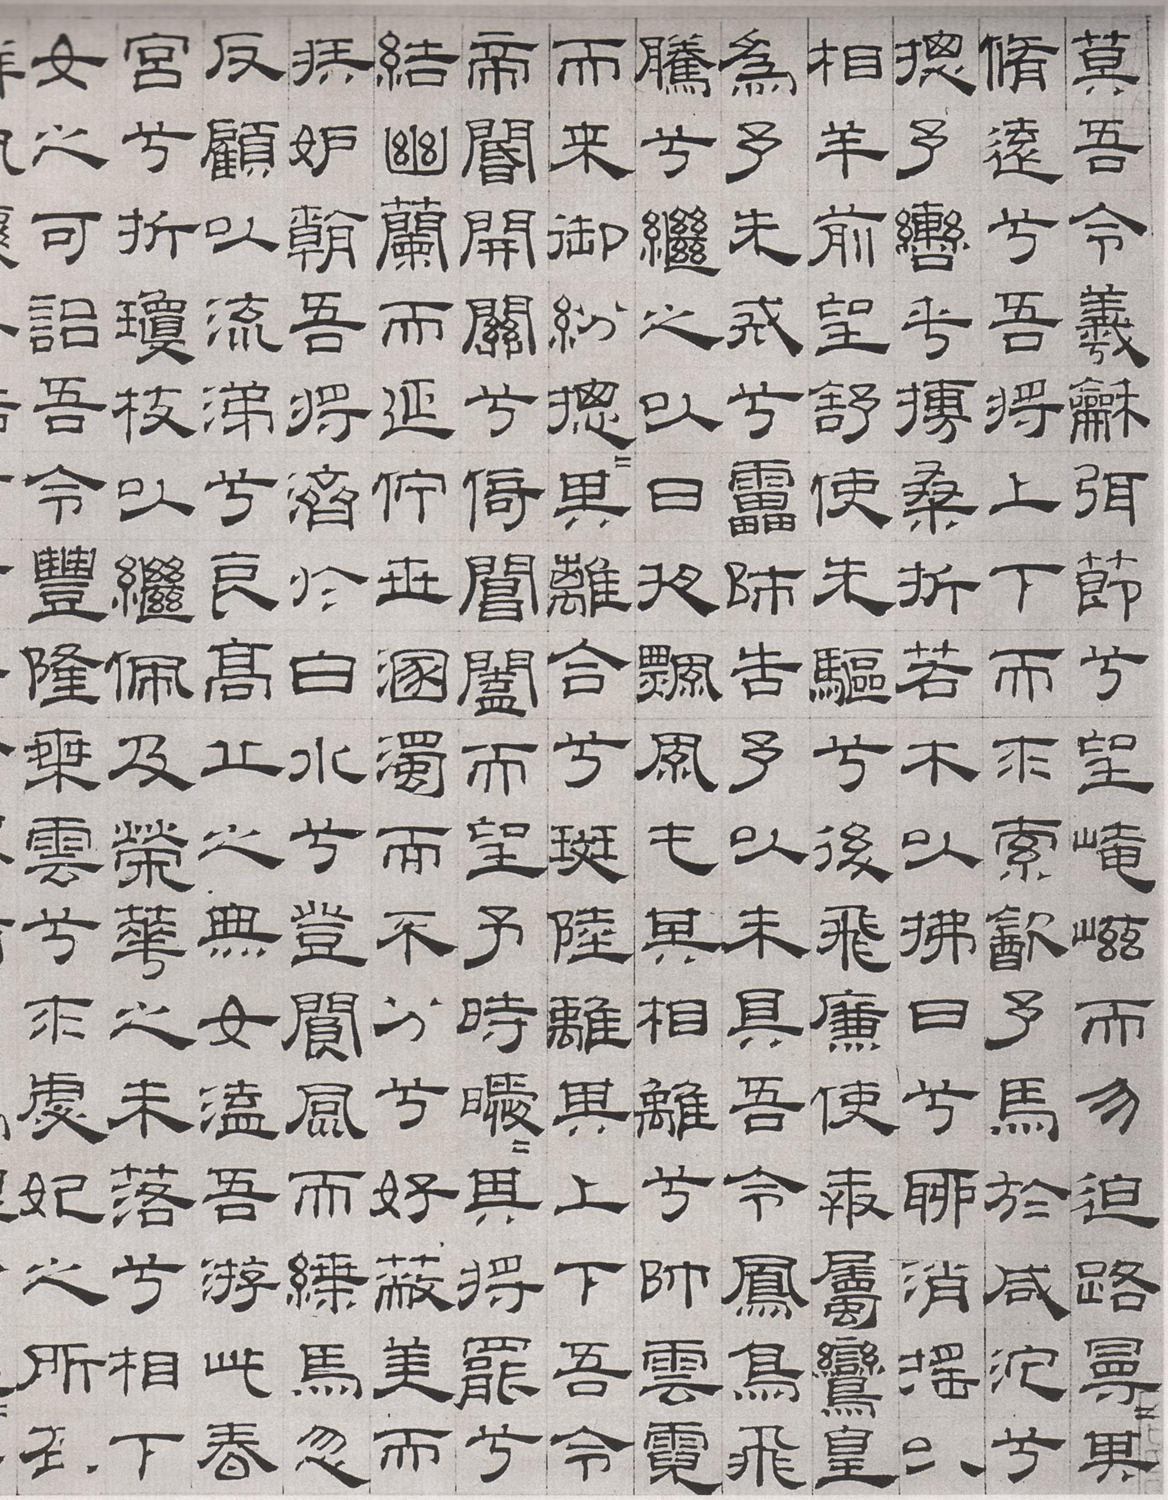 莫吾令羲龢弭節兮望崦嵫而勿迫路曼=其
脩遠兮吾將上下而求索㱃予馬於咸沱兮
摠予轡乎搏桑折若木以拂日兮聊消搖以
相羊前望舒使先驅兮後飛廉使奔屬鸞皇
為予先戒兮靁師告予以未具吾令鳳鳥飛
騰兮繼之以日夜飄風屯其相離兮帥雲霓
而来御紛摠=其離合兮斑陸離其上下吾令
帝閽開關兮倚閶闔而望予時曖=其將罷兮
結幽蘭而延佇世溷濁而不分兮好蔽美而
嫉妒朝吾將濟於白水兮登閬風而緤馬忽
反顧以流涕兮哀高丘之無女溘吾游此春
宮兮折瓊枝以繼佩及榮華之未落兮相下
女之可詒吾令豐隆乘雲兮求虙妃之所在